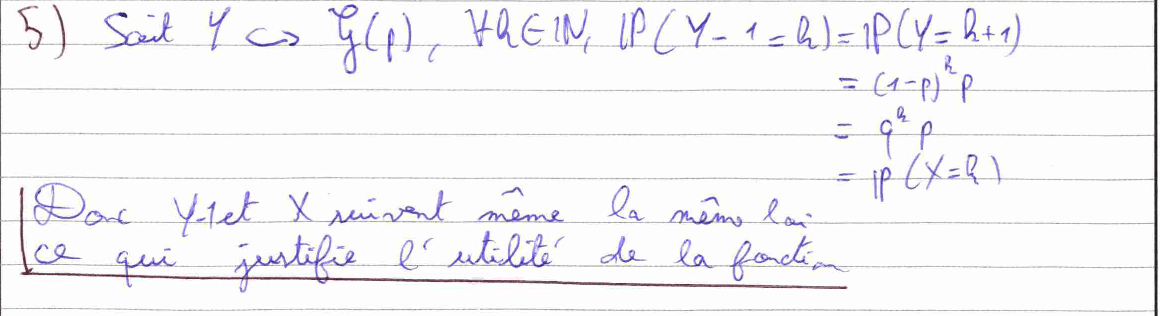 5) Soit Y ↪ G(p), ∀k∈ℕ, ℙ(Y-1=k) = ℙ(Y=k+1)
= (1-p)^k p
= q^k p
= ℙ(X=k)
Donc Y-1 et X suivent même la même loi
ce qui justifie l'utilité de la fonction